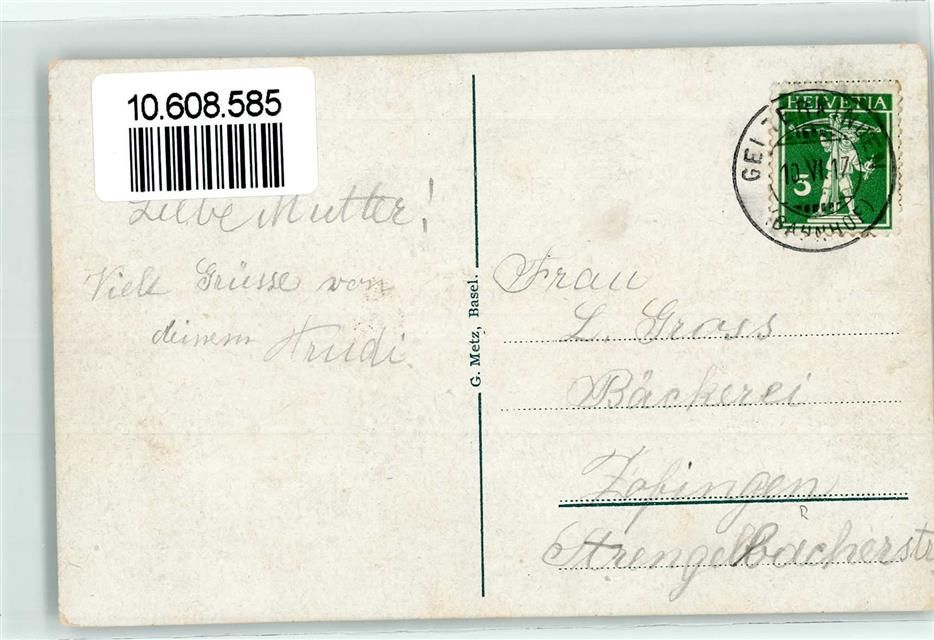 10.608.585
Liebe Mutter!
Viele Grüsse von
deinem Trudi.
G. Metz, Basel.
HELVETIA
5
10.VI.17
(BAHNHOF)
Frau
L. Gross
Bäckerei
Zofingen
Strengelbacherstr